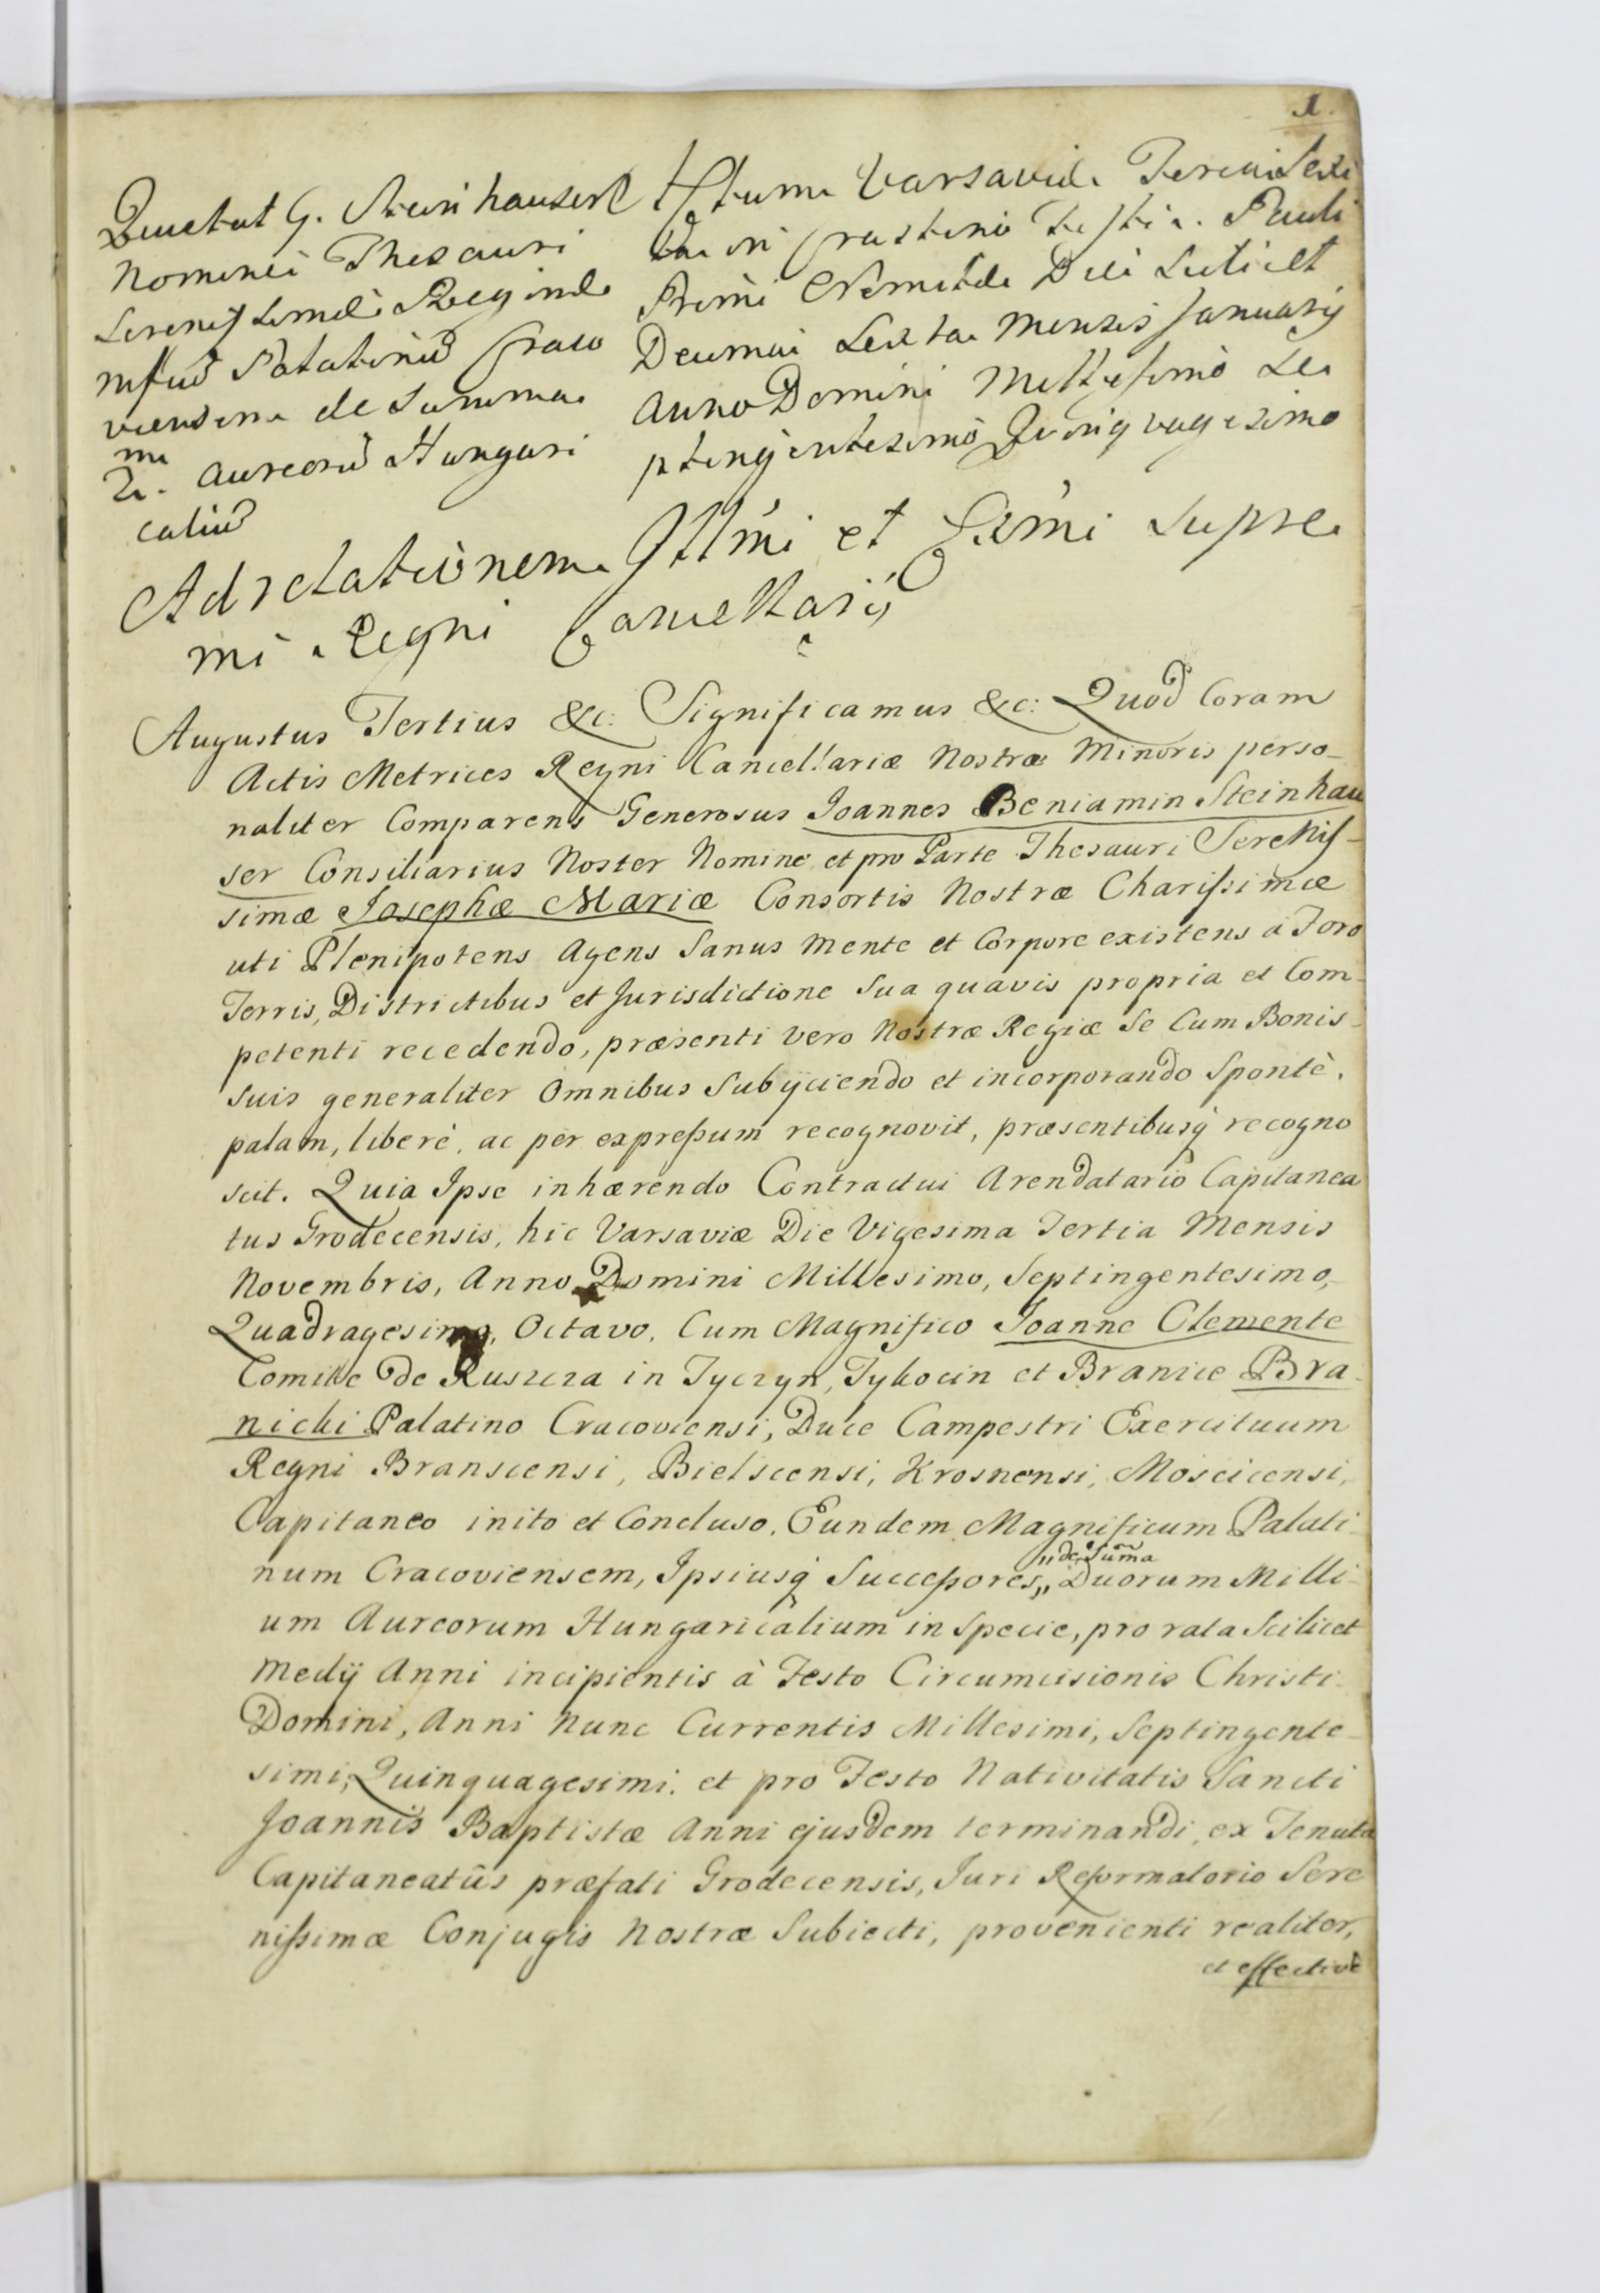 1.
Quietat G. Steinhauser
Nomine Thesauri
Serenissimae Reginae
mfcũ Palatinũ Craco
viensem de Summa
2. mm aureorũ Hungari
caliũ
Actum Varsaviae Feria Sexta
in Crastino Festi S. Pauli
Primi Eremitae Die Scilicet
Decima Sexta Mensis Januarij
Anno Domini Millesimo Se
ptingentesimo Quinquagesimo
Ad relationem Illmi et Exmi Supre
mi Regni Cancellarij
Augustus Tertius &c: Significamus &c: Quod Coram
Actis Metrices Regni Cancellariæ Nostræ Minoris perso-
naliter Comparens Generosus Joannes Beniamin Steinhau
ser Consiliarius Noster Nomine et pro Parte Thesauri Serenis-
simæ Josephæ Mariæ Consortis Nostræ Charissimæ
uti Plenipotens Agens Sanus mente et Corpore existens a Foro
Terris, Districtibus et Jurisdictione Sua quavis propria et Com-
petenti recedendo, præsenti vero Nostræ Regiæ Se Cum Bonis-
suis generaliter Omnibus Subijciendo et incorporando Spontè,
palam, liberè, ac per expressum recognovit, præsentibusq̀ recogno
scit. Quia Ipse inhærendo Contractui Arendatario Capitanea
tus Grodecensis, hic Varsaviæ Die Vigesima Tertia Mensis
Novembris, Anno Domini Millesimo, Septingentesimo,
Quadragesimo, Octavo, Cum Magnifico Joanne Clemente
Comite de Ruszcza in Tyczyn, Tykocin et Branice Bra-
nicki Palatino Cracoviensi, Duce Campestri Exercituum
Regni Branscensi, Bielscensi, Krosnensi, Moscicensi,
Capitaneo inito et Concluso. Eundem Magnificum Palati-
num Cracoviensem, Ipsiusq̀ Successores,, Duorum Milli-
,, de Sum̃a
um Aureorum Hungaricalium in Specie, pro rata Scilicet
Medij Anni incipientis à Festo Circumcisionis Christi
Domini, Anni Nunc Currentis Millesimi, Septingente-
simi, Quinquagesimi. et pro Festo Nativitatis Sancti
Joannis Baptistæ Anni ejusdem terminandi, ex Tenuta
Capitaneatûs præfati Grodecensis, Juri Reformatorio Sere
nissimæ Conjugis Nostræ Subiecti, provenienti realiter,
et effectivè